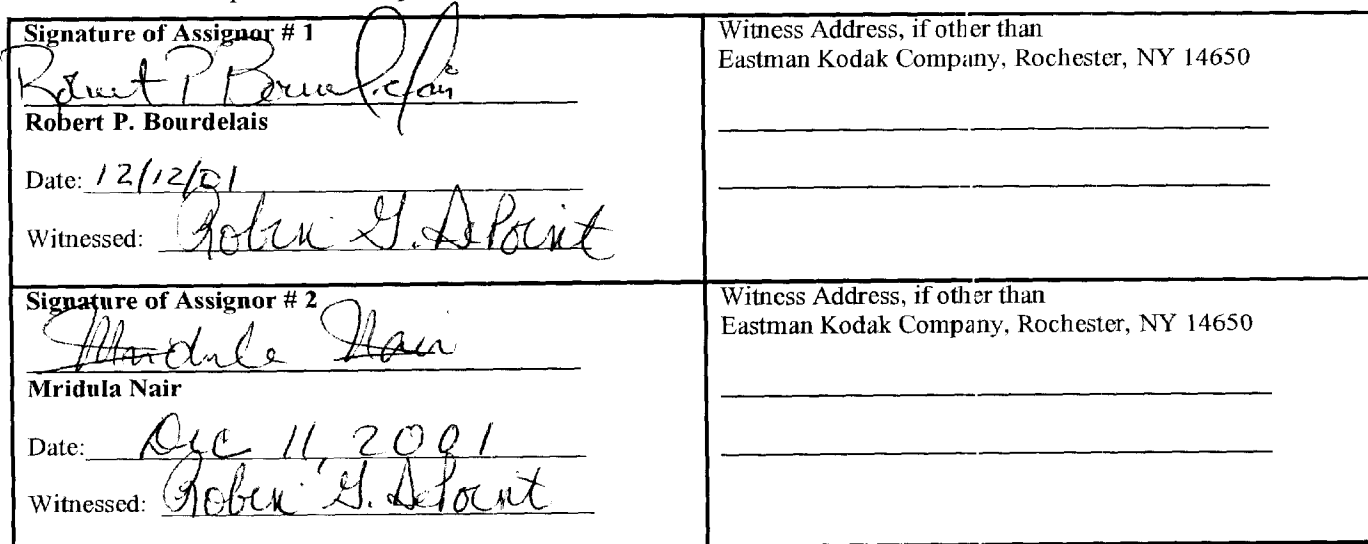 Signature of Assignor # 1
Robert P Bourdelais
Robert P. Bourdelais
Date: 12/12/01
Witnessed: Robin G. DePoint
Witness Address, if other than
Eastman Kodak Company, Rochester, NY 14650
Signature of Assignor # 2
Mridula Nair
Mridula Nair
Date: Dec 11, 2001
Witnessed: Robin G. DePoint
Witness Address, if other than
Eastman Kodak Company, Rochester, NY 14650